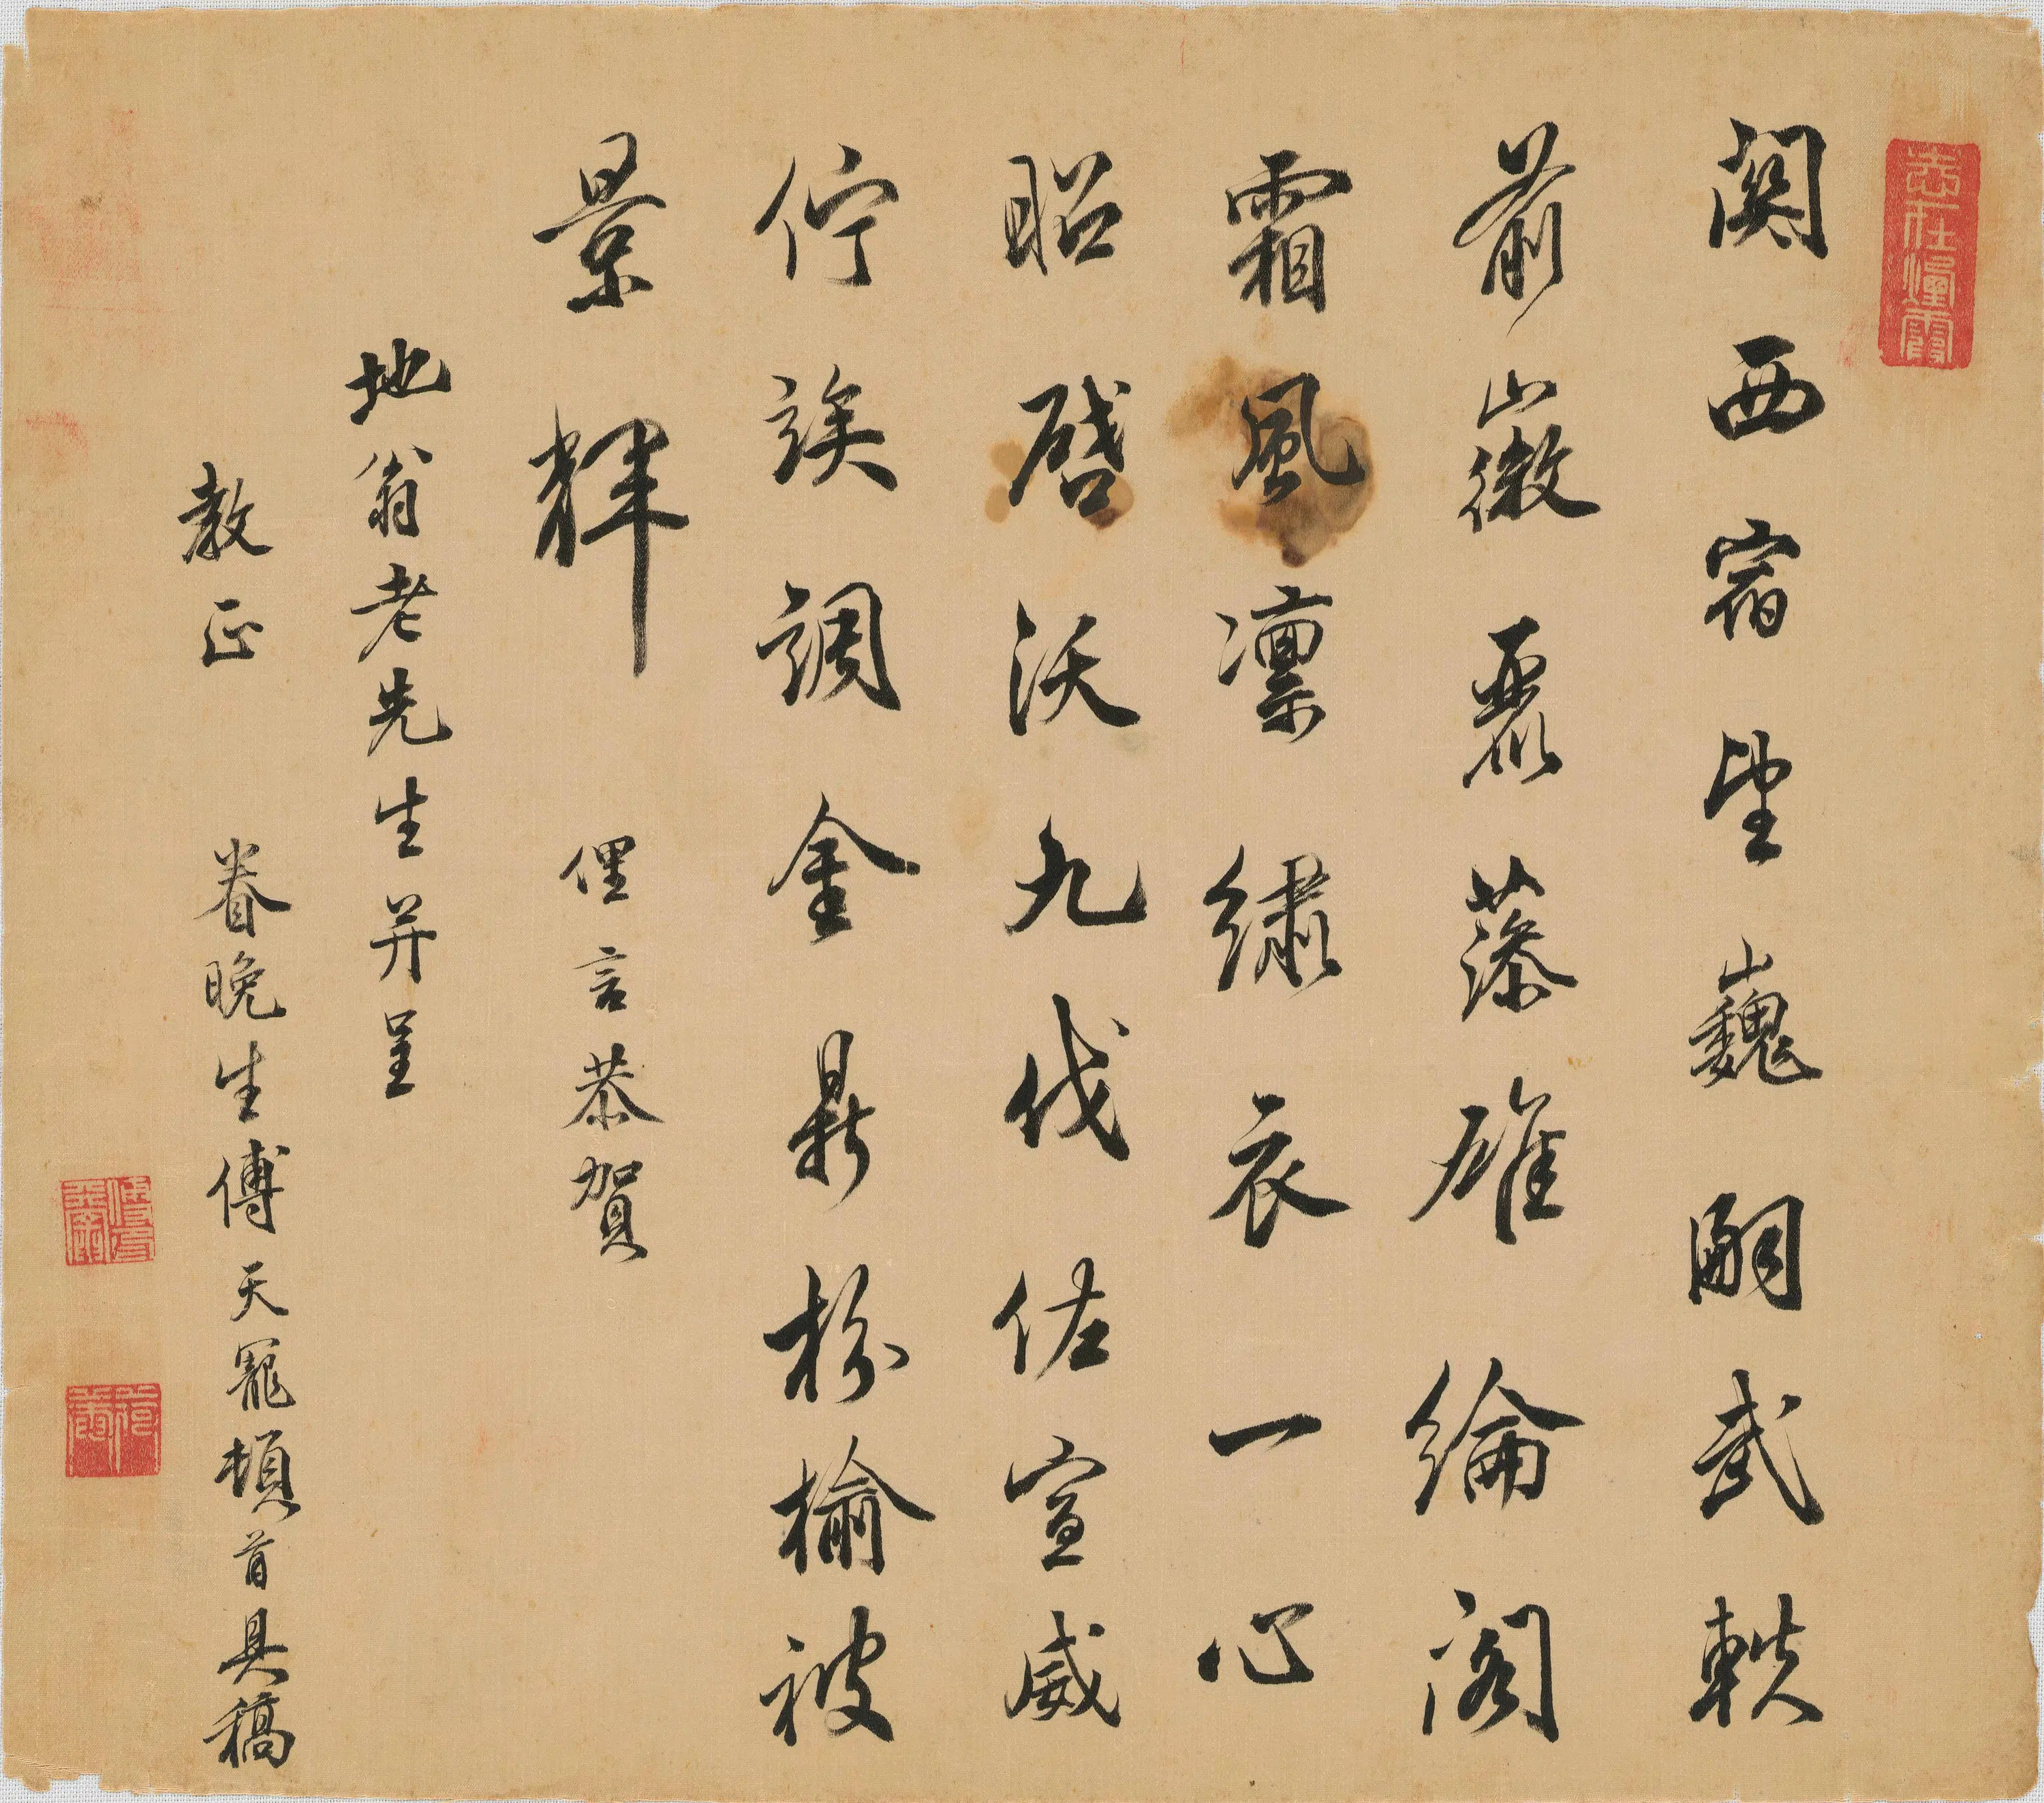 志在煙霞
関西宿望巍嗣武軼
前徽麗藻雄綸閣
霜風凛繡衣一心
昭啓沃九伐佐宣威
佇竢調金鼎枌榆被
景輝 俚言恭賀
地翁老先生并呈
教正 眷晚生傅天寵頓首具稿